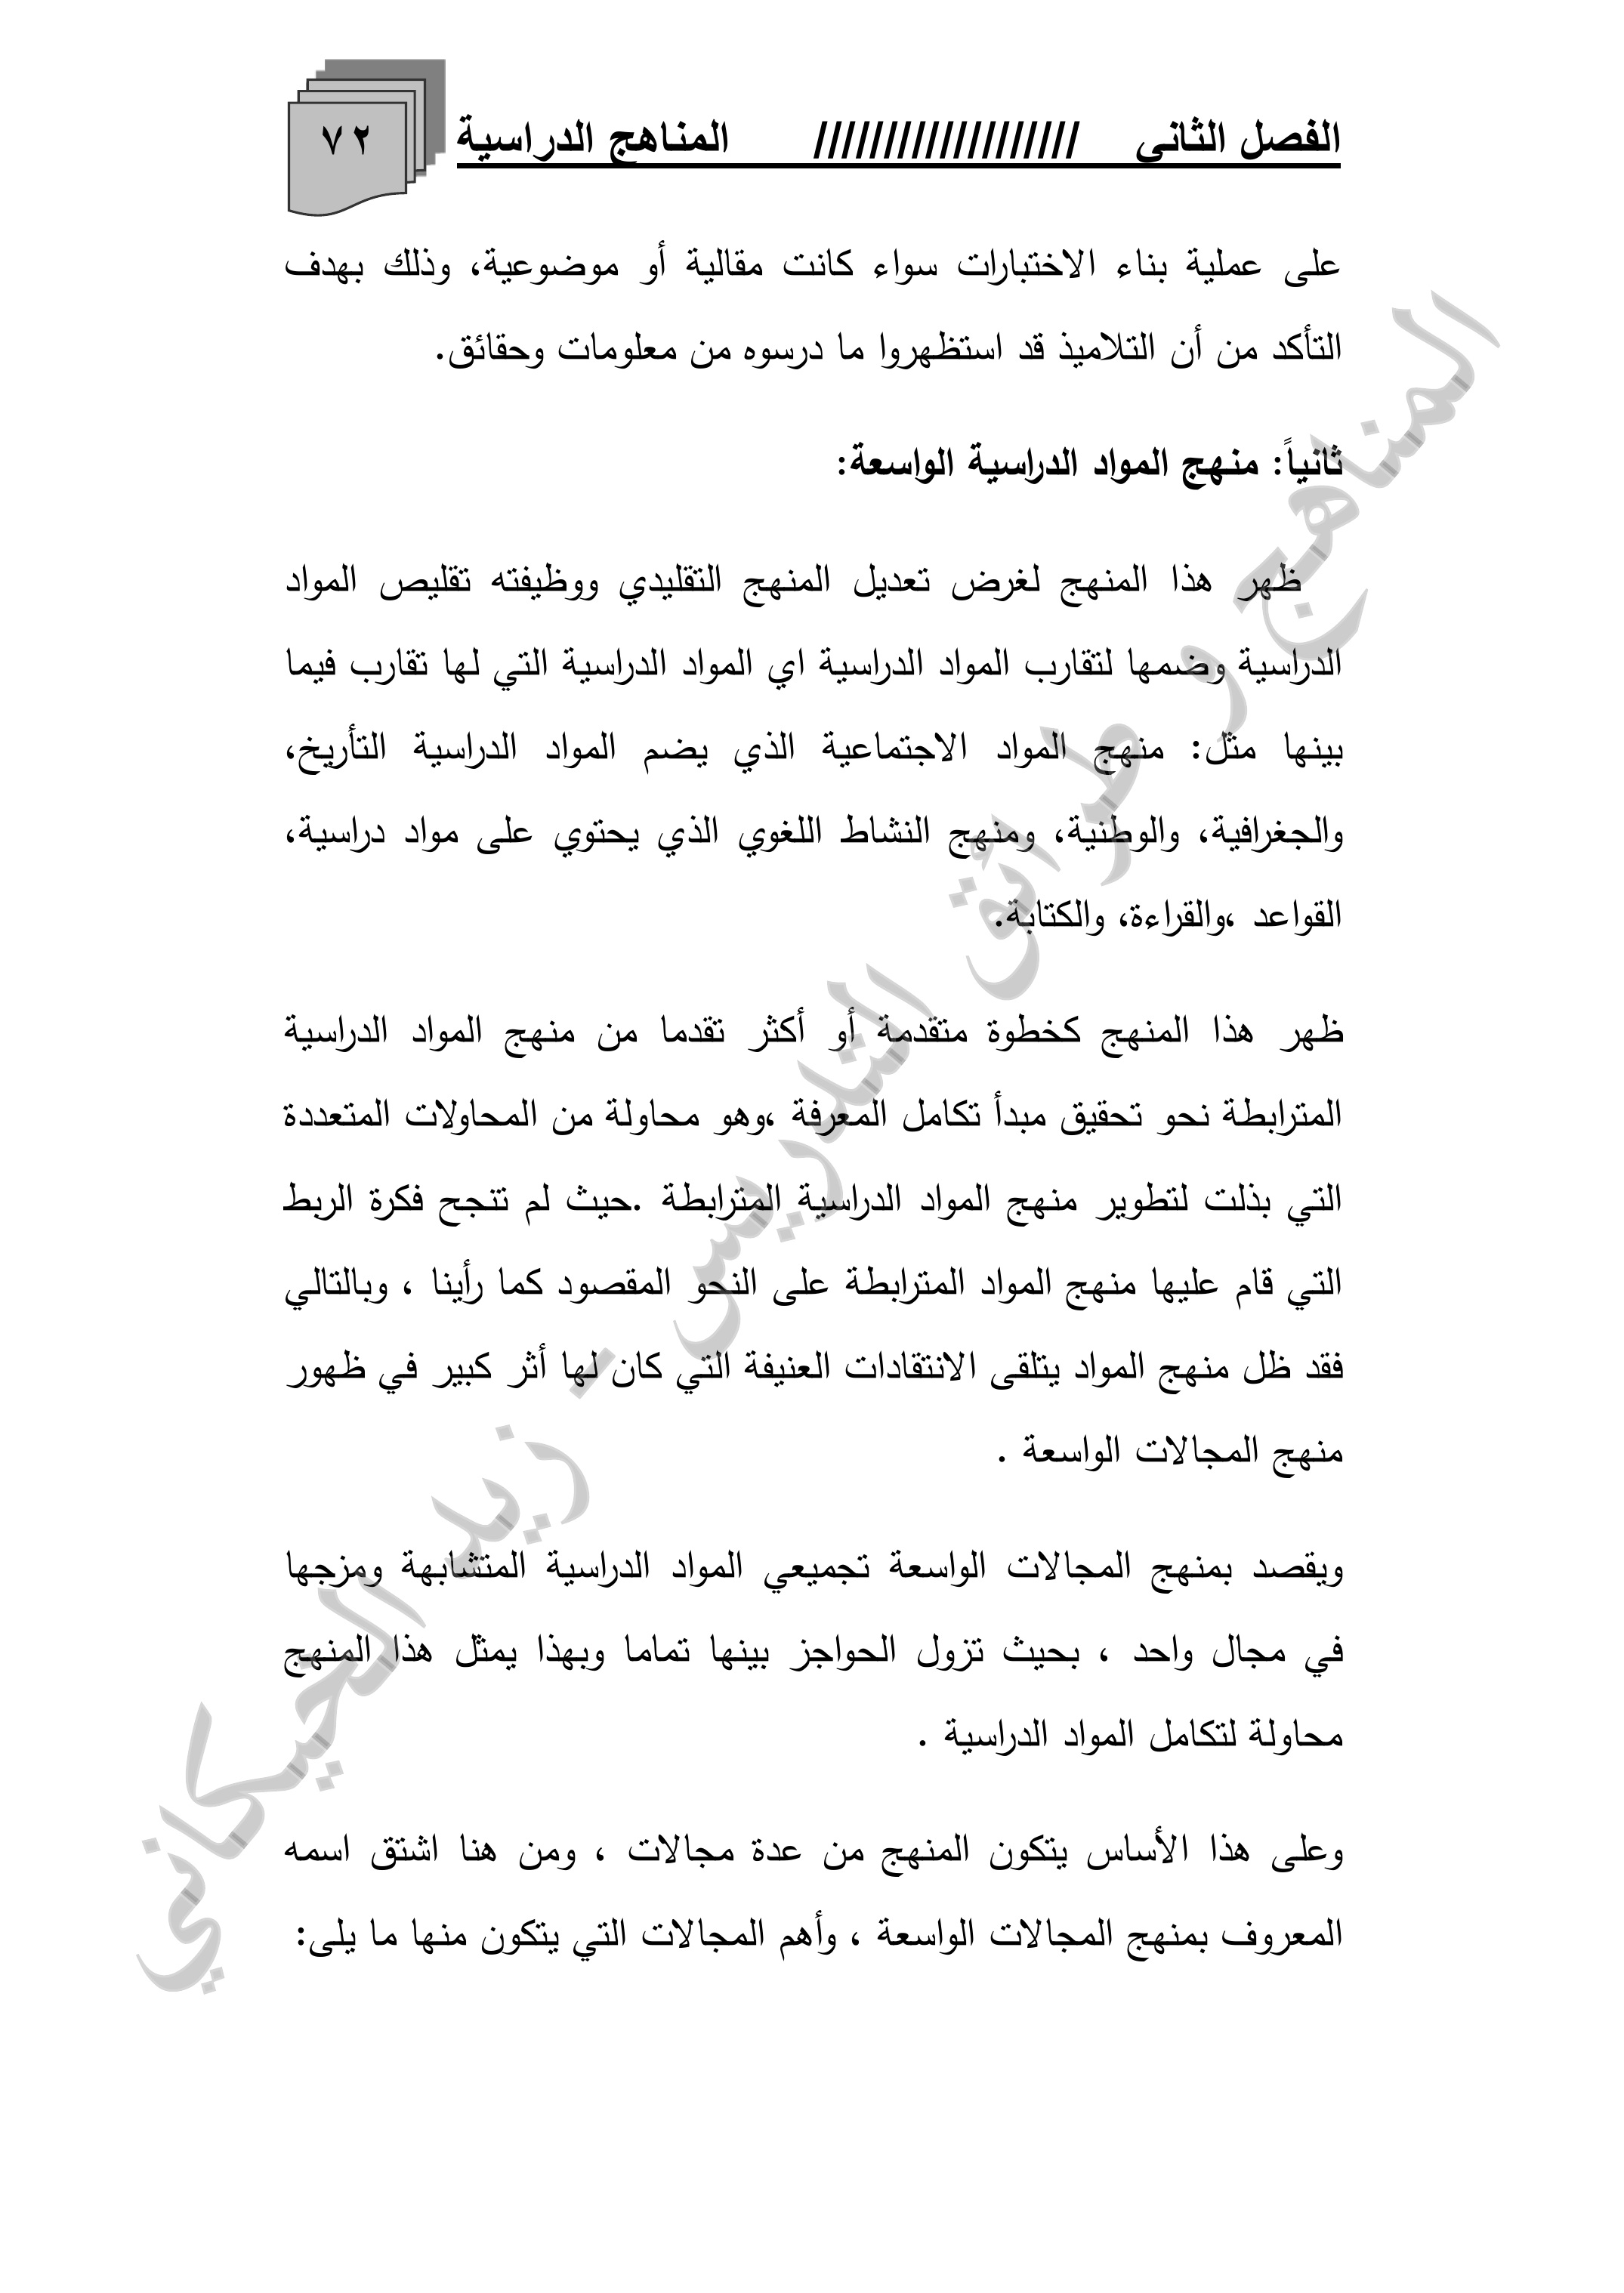 الفصل الثاني /////////////////// المناهج الدراسية
٧٢
على عملية بناء الاختبارات سواء كانت مقالية أو موضوعية، وذلك بهدف
التأكد من أن التلاميذ قد استظهروا ما درسوه من معلومات وحقائق.
ثانياً: منهج المواد الدراسية الواسعة:
ظهر هذا المنهج لغرض تعديل المنهج التقليدي ووظيفته تقليص المواد
الدراسية وضمها لتقارب المواد الدراسية اي المواد الدراسية التي لها تقارب فيما
بينها مثل: منهج المواد الاجتماعية الذي يضم المواد الدراسية التأريخ،
والجغرافية، والوطنية، ومنهج النشاط اللغوي الذي يحتوي على مواد دراسية،
القواعد ،والقراءة، والكتابة.
ظهر هذا المنهج كخطوة متقدمة أو أكثر تقدما من منهج المواد الدراسية
المترابطة نحو تحقيق مبدأ تكامل المعرفة ،وهو محاولة من المحاولات المتعددة
التي بذلت لتطوير منهج المواد الدراسية المترابطة .حيث لم تنجح فكرة الربط
التي قام عليها منهج المواد المترابطة على النحو المقصود كما رأينا ، وبالتالي
فقد ظل منهج المواد يتلقى الانتقادات العنيفة التي كان لها أثر كبير في ظهور
منهج المجالات الواسعة .
ويقصد بمنهج المجالات الواسعة تجميعي المواد الدراسية المتشابهة ومزجها
في مجال واحد ، بحيث تزول الحواجز بينها تماما وبهذا يمثل هذا المنهج
محاولة لتكامل المواد الدراسية .
وعلى هذا الأساس يتكون المنهج من عدة مجالات ، ومن هنا اشتق اسمه
المعروف بمنهج المجالات الواسعة ، وأهم المجالات التي يتكون منها ما يلى:
المناهج و طرائق التدريس - زيد الخيكاني